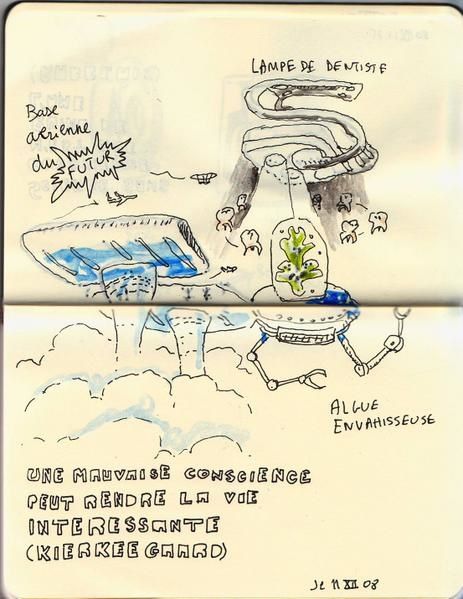 LAMPE DE DENTISTE
Base
aérienne
du
FUTUR
ALGUE
ENVAHISSEUSE
UNE MAUVAISE CONSCIENCE
PEUT RENDRE LA VIE
INTERESSANTE
(KIERKEEGAARD)
JE 11 XII 08